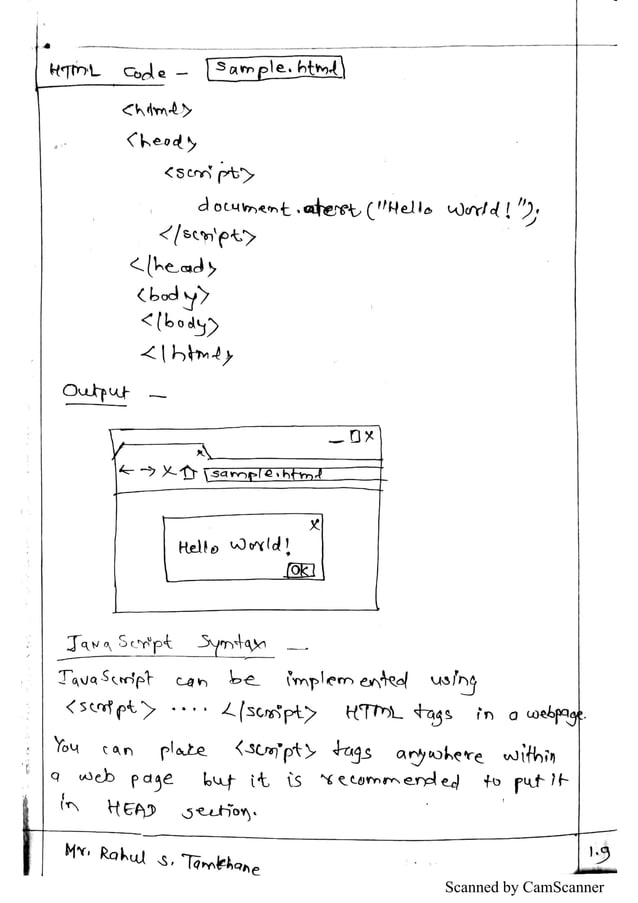 HTML Code - sample.html
<html>
<head>
<script>
document.alert("Hello World!");
</script>
</head>
<body>
</body>
</html>
Output -
- □ x
x
← → X ⌂ sample.html
x
Hello World!
OK
JavaScript Syntax -
JavaScript can be implemented using
<script> .... </script> HTML tags in a webpage.
You can place <script> tags anywhere within
a web page but it is recommended to put it
in HEAD section.
Mr. Rahul S. Tamkhane
1.9
Scanned by CamScanner